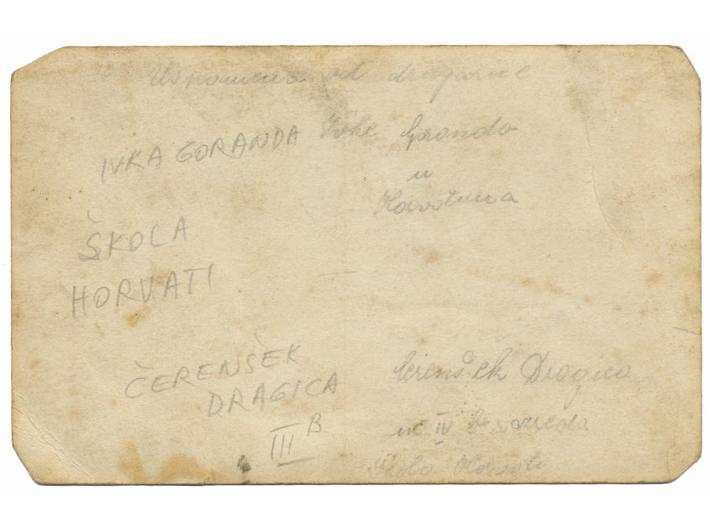 Uspomena od drugarice
IVKA GORANDA Ivke Goranda
u
ŠKOLA
HORVATI
ČERENŠEK Čerenšek Dragica
DRAGICA
III B
uč IV B razreda
Škola Horvati